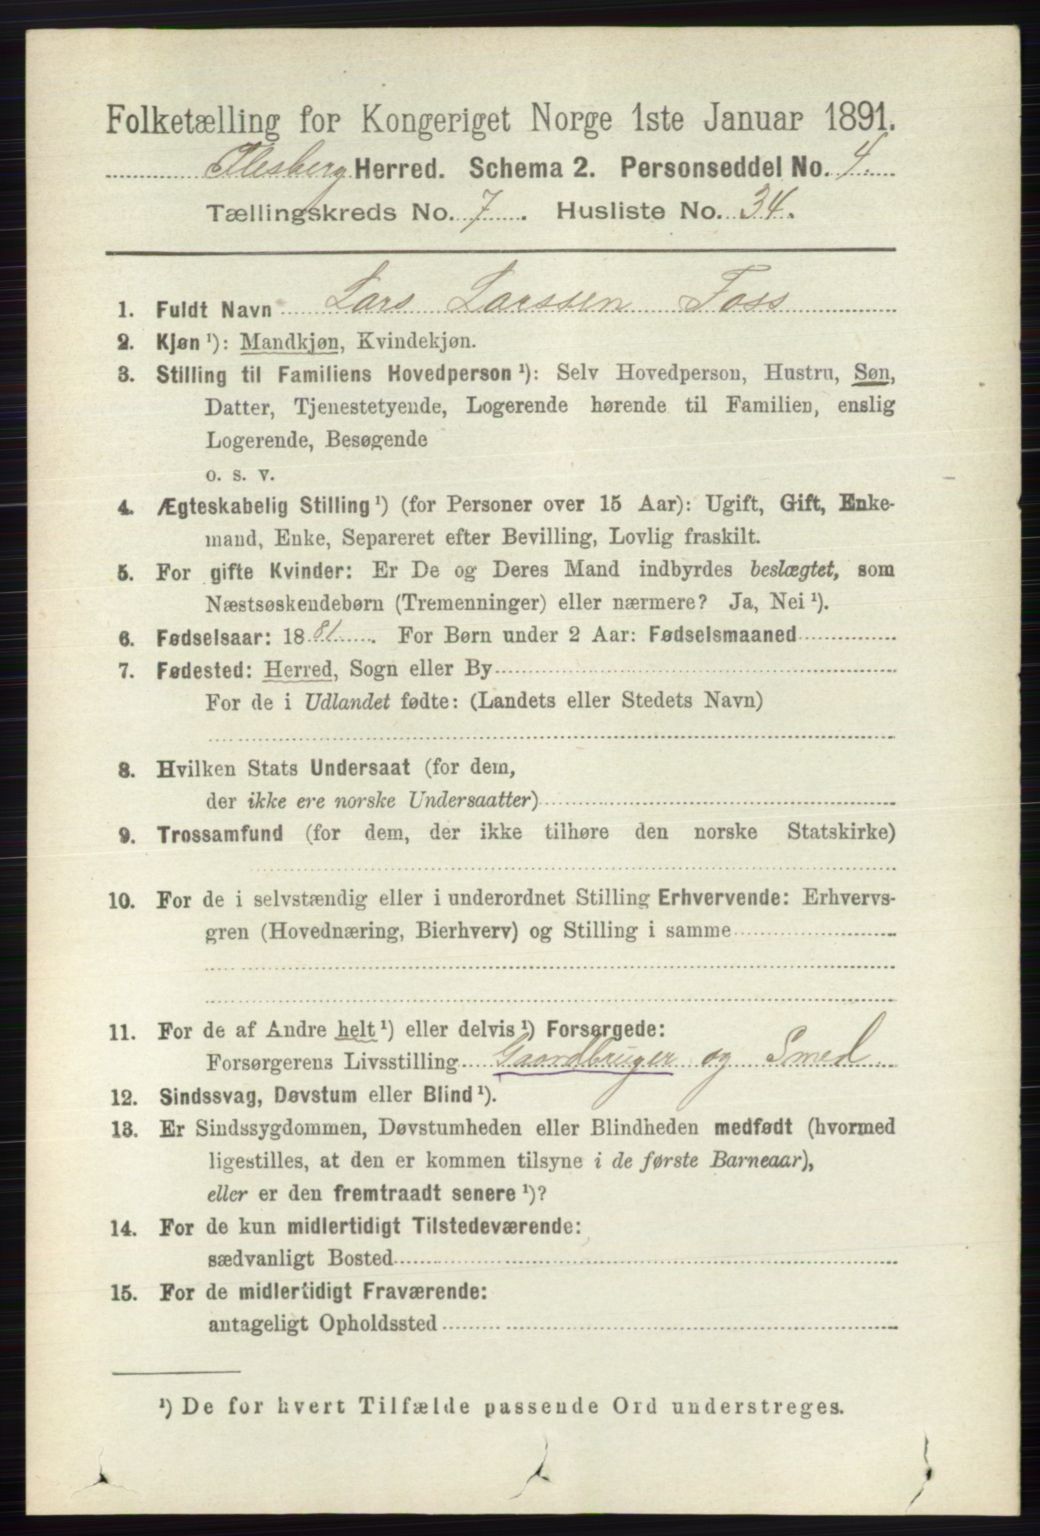 Folketælling for Kongeriget Norge 1ste Januar 1891.
Flesberg Herred. Schema 2. Personseddel No. 4.
Tællingskreds No. 7. Husliste No. 34.
1. Fuldt Navn Lars Larssen Foss
2. Kjøn ¹): Mandkjøn, Kvindekjøn.
3. Stilling til Familiens Hovedperson ¹): Selv Hovedperson, Hustru, Søn,
Datter, Tjenestetyende, Logerende hørende til Familien, enslig
Logerende, Besøgende
o. s. v.
4. Ægteskabelig Stilling ¹) (for Personer over 15 Aar): Ugift, Gift, Enke-
mand, Enke, Separeret efter Bevilling, Lovlig fraskilt.
5. For gifte Kvinder: Er De og Deres Mand indbyrdes beslægtet, som
Næstsøskendebørn (Tremenninger) eller nærmere? Ja, Nei ¹).
6. Fødselsaar: 1881. For Børn under 2 Aar: Fødselsmaaned
7. Fødested: Herred, Sogn eller By
For de i Udlandet fødte: (Landets eller Stedets Navn)
8. Hvilken Stats Undersaat (for dem,
der ikke ere norske Undersaatter)
9. Trossamfund (for dem, der ikke tilhøre den norske Statskirke)
10. For de i selvstændig eller i underordnet Stilling Erhvervende: Erhvervs-
gren (Hovednæring, Bierhverv) og Stilling i samme
11. For de af Andre helt ¹) eller delvis ¹) Forsørgede:
Forsørgerens Livsstilling Gaardbruger og Smed
12. Sindssvag, Døvstum eller Blind ¹).
13. Er Sindssygdommen, Døvstumheden eller Blindheden medfødt (hvormed
ligestilles, at den er kommen tilsyne i de første Barneaar),
eller er den fremtraadt senere ¹)?
14. For de kun midlertidigt Tilstedeværende:
sædvanligt Bosted
15. For de midlertidigt Fraværende:
antageligt Opholdssted
¹) De for hvert Tilfælde passende Ord understreges.